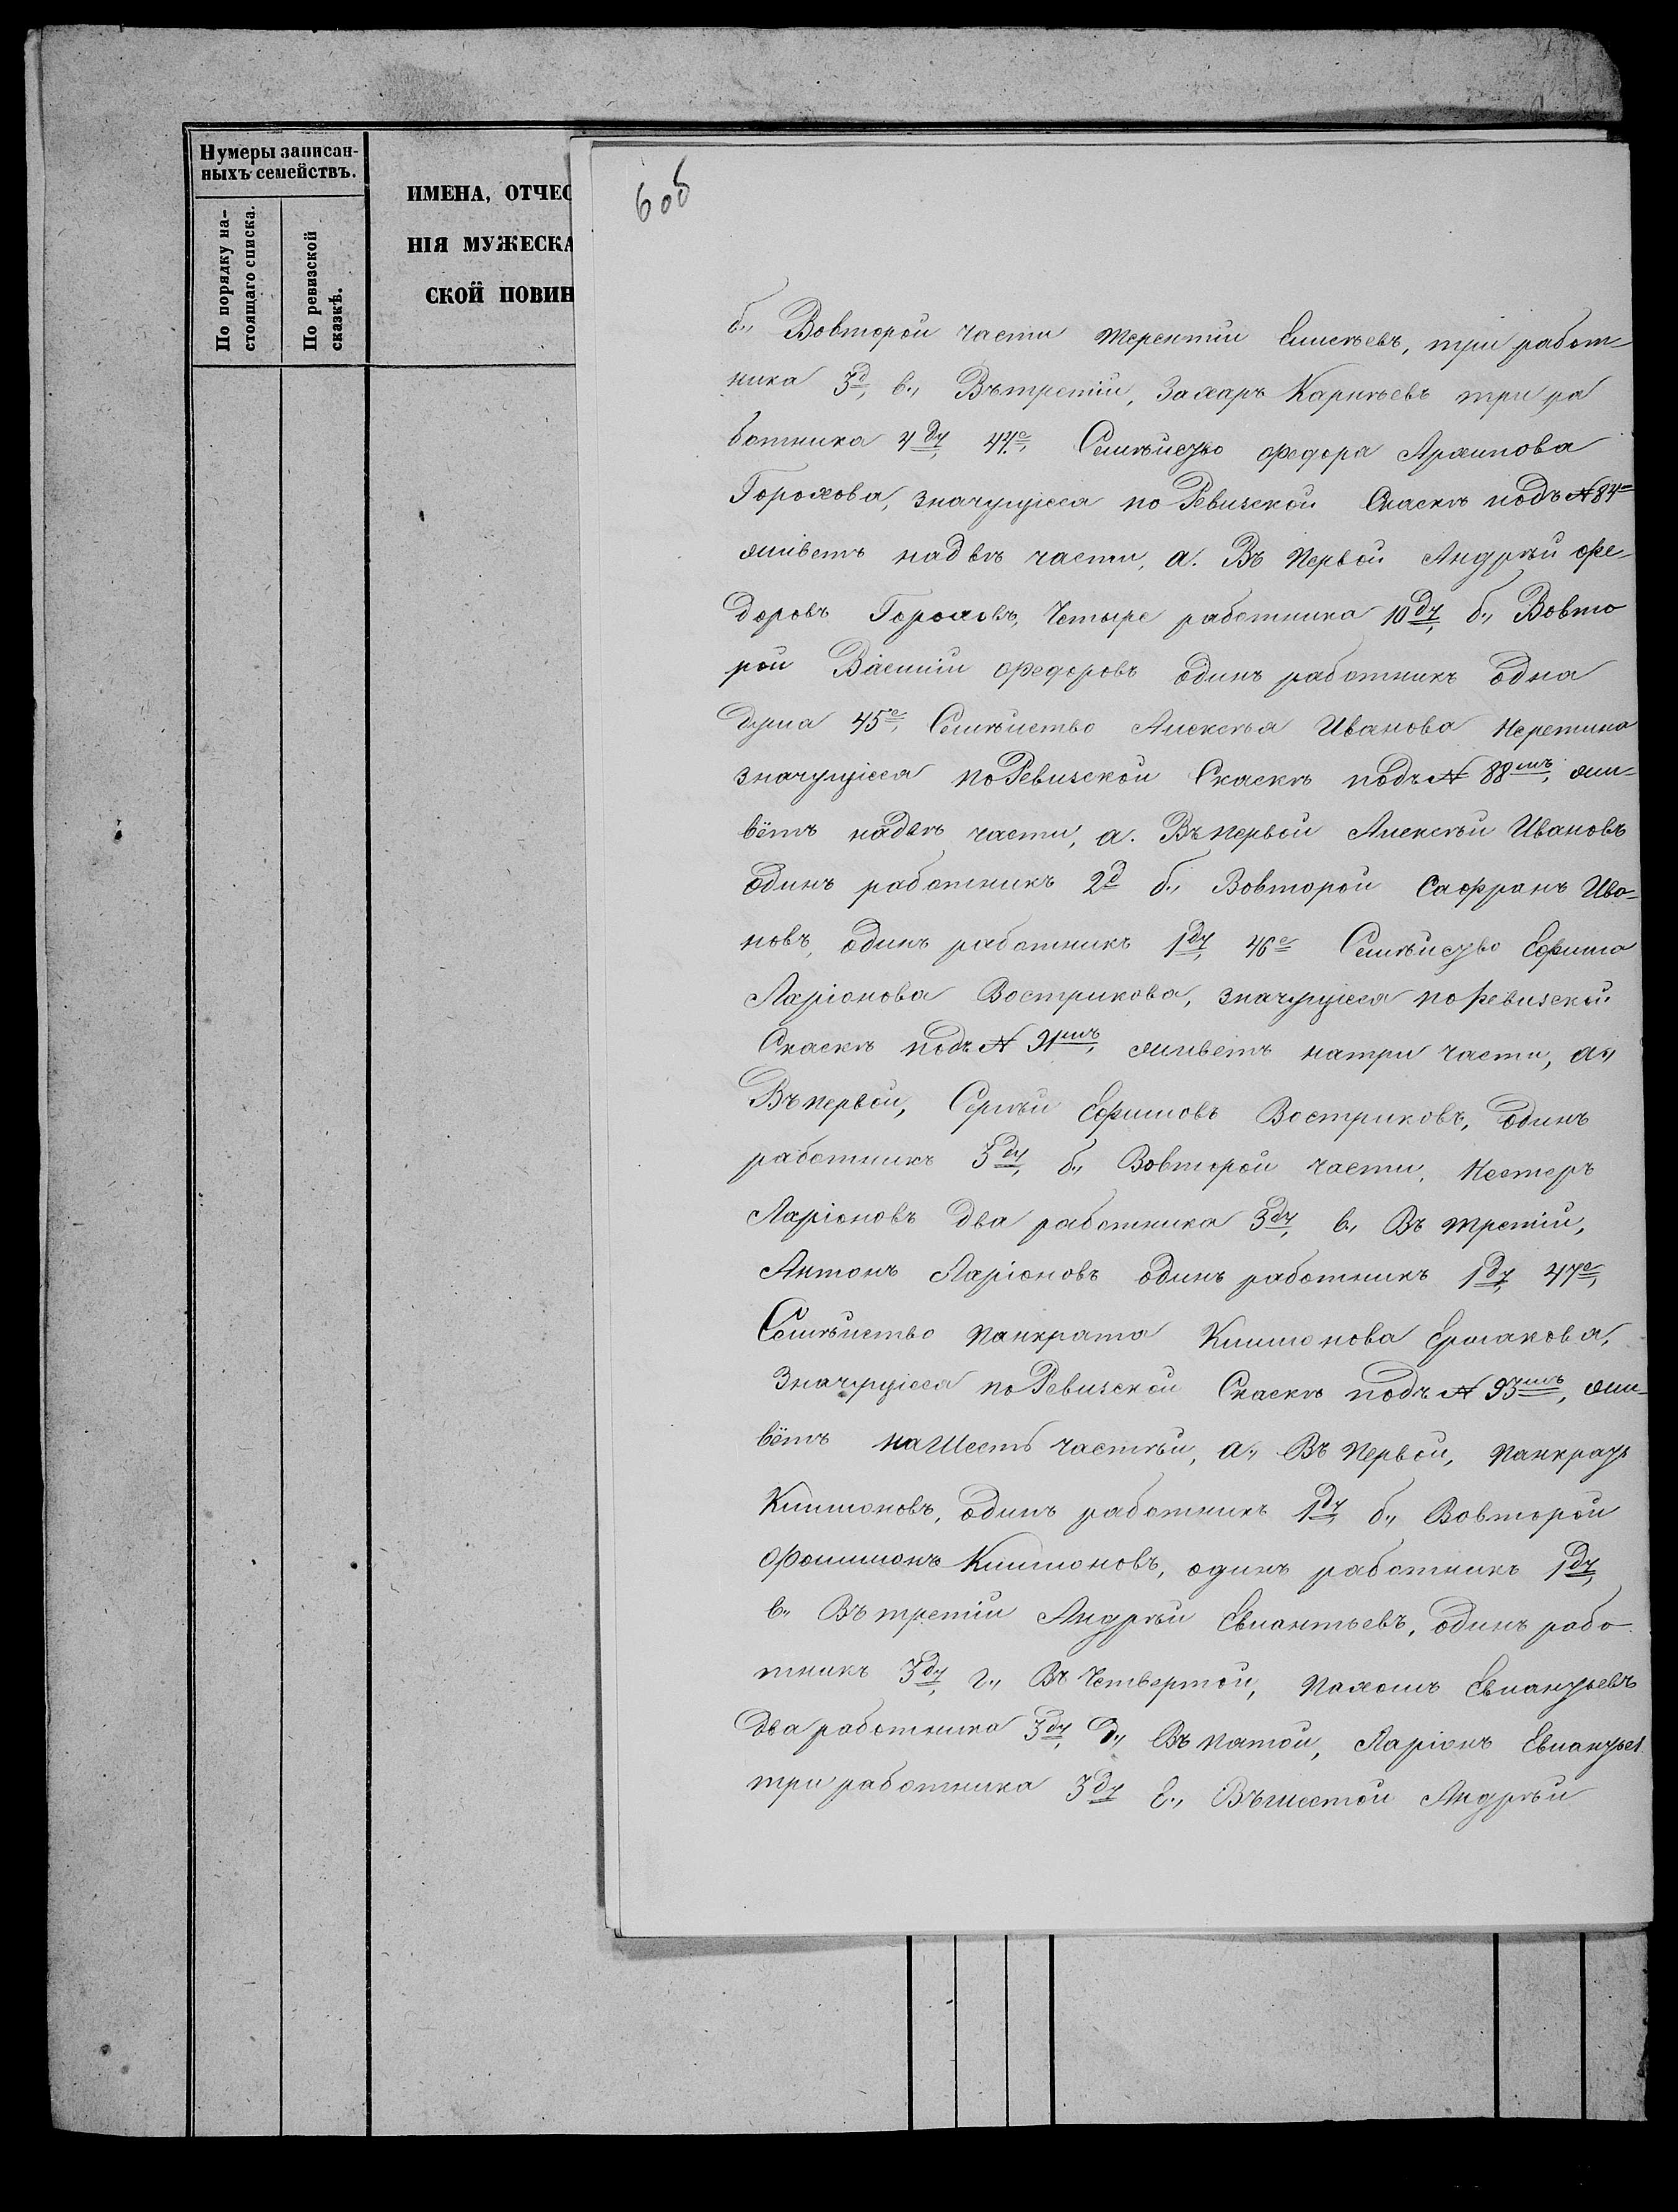 Нумеры записан-
ныхъ семействъ.
По порядку на-
стоящаго списка.
По ревизской
сказкѣ.
ИМЕНА, ОТЧЕС
НІЯ МУЖЕСКА
СКОЙ ПОВИН
6 об
б., Вовторой части терентій Елисѣевъ, три работ-
ника 3д, в., Вътретій, Захаръ Карпѣевъ три ра
ботника 4ду, 44е, Семѣйство федора Архипова
Горохова, значущіеся по Ревизской Скаскѣ подъ № 84м
живетъ надвѣ части, а. Въ первой Андрѣй фе-
доровъ Гороховъ, Четыре работника 10ду, б., Вовто
рой Василій федоровъ одинъ работникъ одна
душа 45е, Семѣйство Алексѣя Иванова Неретина
значущіеся поРевизской Скаскѣ подъ № 88мъ, жи-
вётъ надвѣ части, а. Въпервой Алексѣй Ивановъ
одинъ работникъ 2д б., Вовторой Сафранъ Ива-
новъ, одинъ работникъ 1ду, 46е Семѣйство Ефима
Ларіонова Вострикова, значущіеся поревизской
Скаскѣ подъ № 91мъ, живетъ натри части, а.,
Въпервой, Сергѣй Ефимовъ Востриковъ, одинъ
работникъ 3ду, б., Вовторой части, Нестеръ
Ларіоновъ два работника 3ду, в., Въ третій,
Антонъ Ларіоновъ одинъ работникъ 1ду, 47е,
Семѣйство панкрата Климонова Ермакова,
Значущіеся поРевизской Скаскѣ подъ № 93мъ, жи-
вётъ наШесть частѣй, а., Въ первой, панкратъ
Климоновъ, одинъ работникъ 1ду, б., Вовторой
Филимонъ Климоновъ, одинъ работникъ 1ду,
в., Вътретій Андрѣй Евлантьевъ, одинъ рабо
тникъ 3ду, г., Въ Четвертой, пахомъ Евлантьевъ
два работника 3ду, д., Въ пятой, Ларіонъ Евлантьев
три работника 3ду е., Въшестой Андрѣй